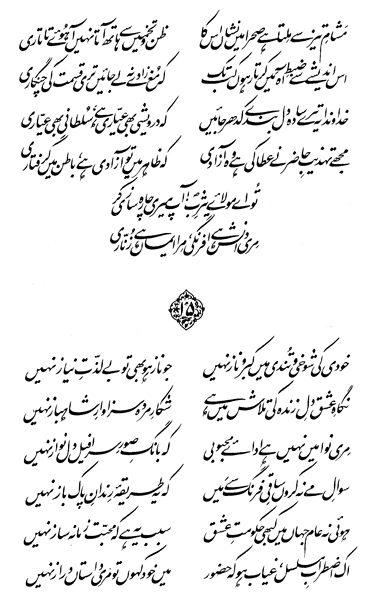 مشامِ تیز سے ملتا ہے صحرا میں نشاں اس کا ظن و تخمیں سے ہاتھ آتا نہیں آہوئے تاتاری
اس اندیشے سے ضبطِ آہ میں کرتا رہوں کب تک کہ مغ زادے نہ لے جائیں تری قسمت کی چنگاری
خداوندا یہ تیرے سادہ دل بندے کدھر جائیں کہ درویشی بھی عیاری ہے، سلطانی بھی عیاری
مجھے تہذیبِ حاضر نے عطا کی ہے وہ آزادی کہ ظاہر میں تو آزادی ہے، باطن میں گرفتاری
تُو اے مولائے یثربؐ! آپ میری چارہ سازی کر
مری دانش ہے افرنگی، مرا ایماں ہے زُنّاری
۱۵
خودی کی شوخی و تندی میں کبر و ناز نہیں جو ناز ہو بھی تو بے لذتِ نیاز نہیں
نگاہِ عشق دلِ زندہ کی تلاش میں ہے شکارِ مردہ سزاوارِ شاہباز نہیں
مری نوا میں نہیں ہے ادائے محبوبی کہ بانگِ صورِ سرافیل دل نواز نہیں
سوالِ مے نہ کروں ساقیِ فرنگ سے میں کہ یہ طریقۂ رندانِ پاک باز نہیں
ہوئی نہ عام جہاں میں کبھی حکومتِ عشق سبب یہ ہے کہ محبت زمانہ ساز نہیں
اک اضطرابِ مسلسل، غیاب ہو کہ حضور میں خود کہوں تو مری داستاں دراز نہیں